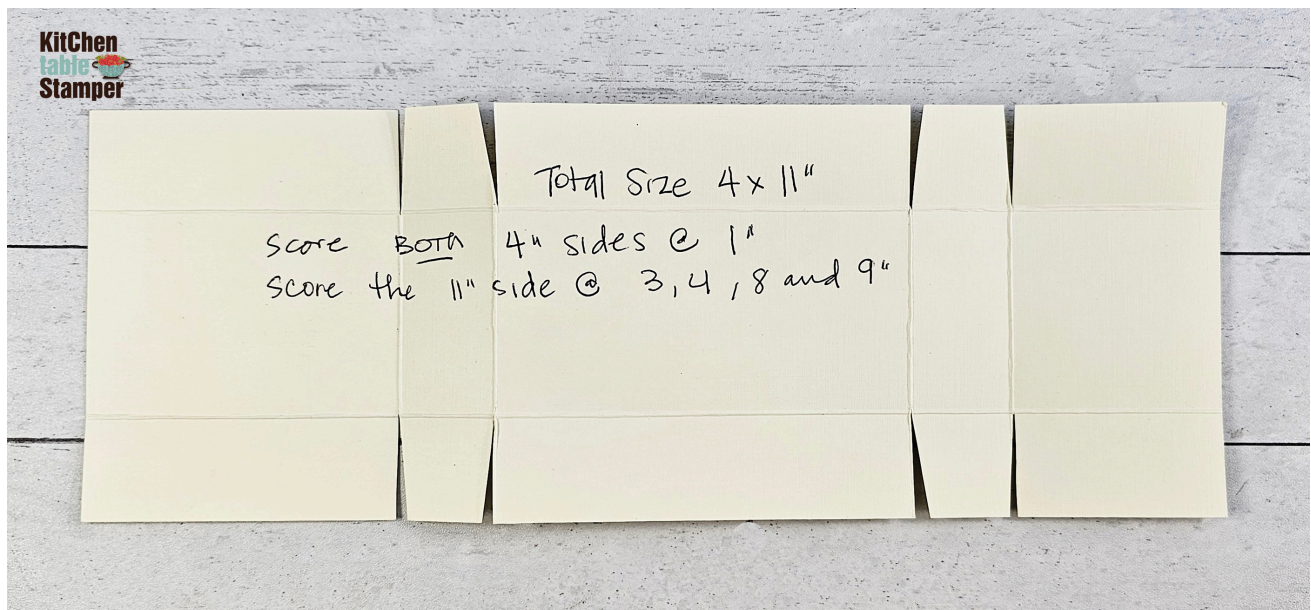 KitChen
table
Stamper
Total Size 4 x 11"
Score BOTH 4" sides @ 1"
Score the 11" side @ 3, 4, 8 and 9"